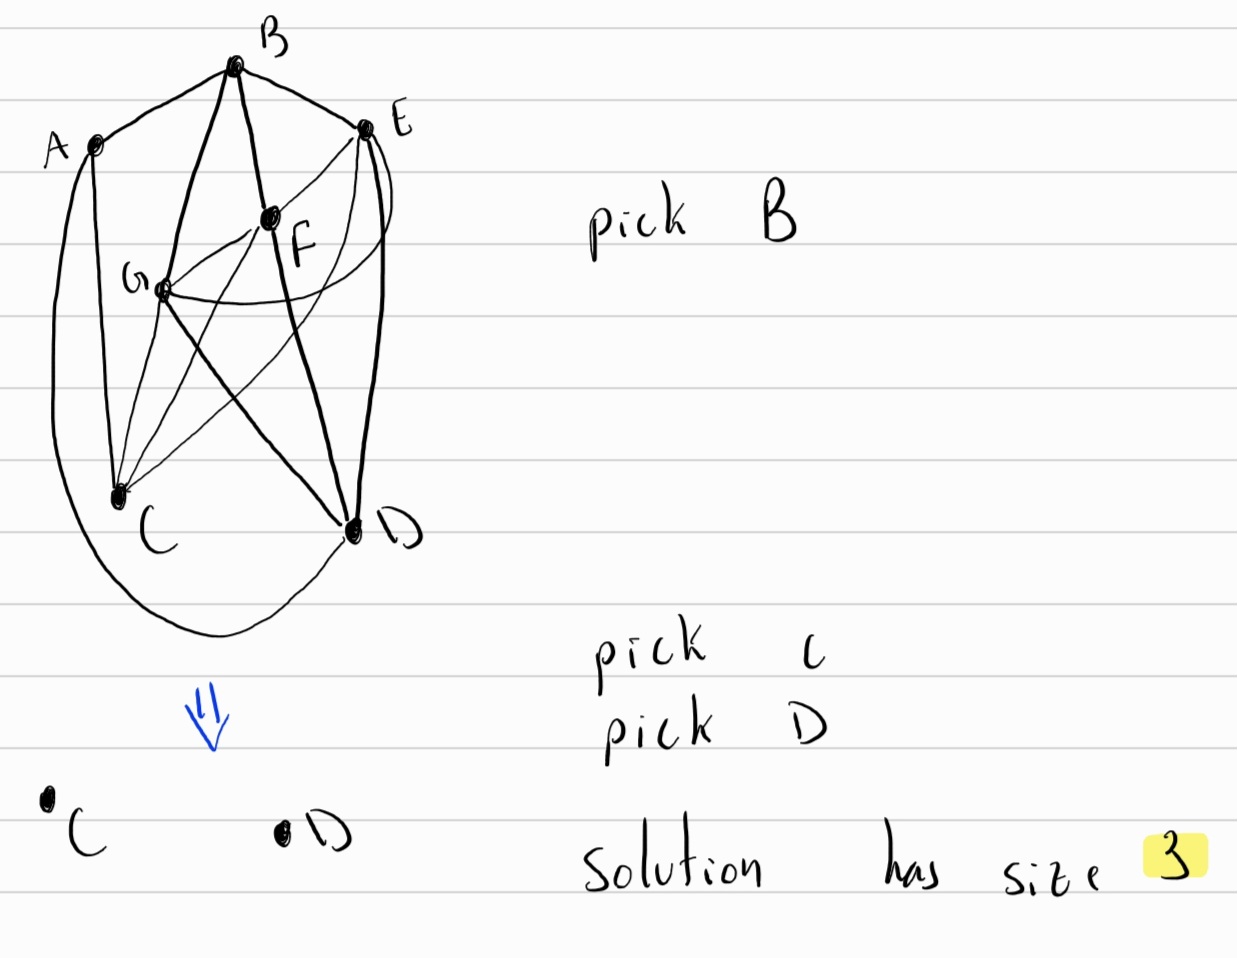 B
A
E
F
G
C
D
pick B
pick C
pick D
C
D
solution has size 3